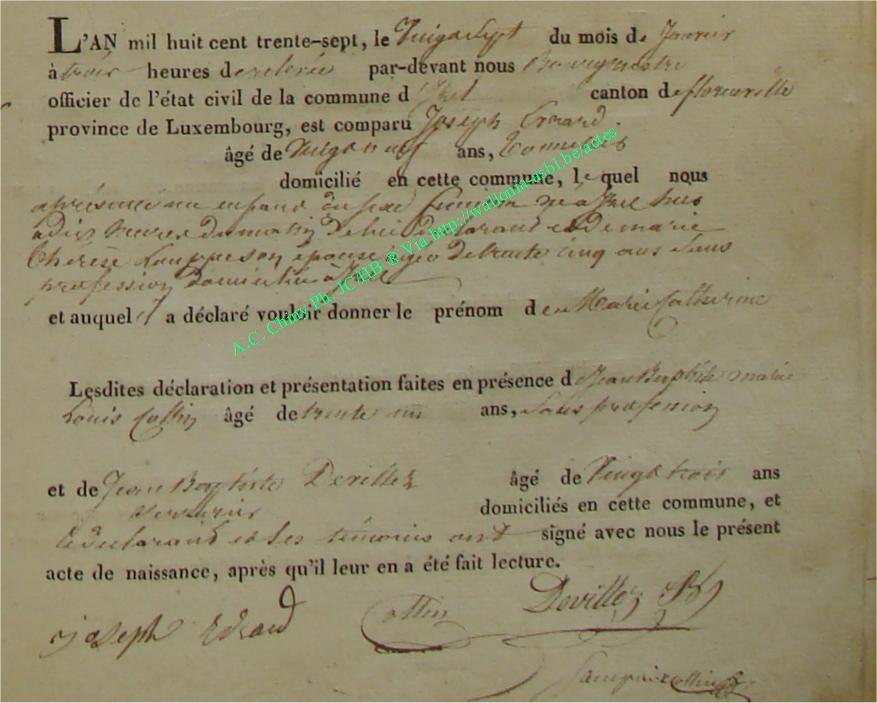 L'AN mil huit cent trente-sept, le Vingt Sept du mois de Janvier
à trois heures de relevée par-devant nous Bourgmestre
officier de l'état civil de la commune d'Izel canton de florenville
province de Luxembourg, est comparu Joseph Errard.
âgé de Vingt neuf ans, Tonnelier
domicilié en cette commune, lequel nous
a présenté un enfant du sexe féminin né à Izel hier
à dix heures du matin de lui déclarant et de marie
Thérèse épouse âgée de trente cinq ans Sans
profession domiciliée à Izel
et auquel il a déclaré vouloir donner le prénom de Marie Catherine
Lesdites déclaration et présentation faites en présence de Jean Baptiste marie
Louis Collin âgé de trente un ans, Sans profession
et de Jean Baptiste Devillez âgé de Vingt trois ans
Serrurier domiciliés en cette commune, et
le déclarant et les témoins ont signé avec nous le présent
acte de naissance, après qu'il leur en a été fait lecture.
joseph Erard Collin Devillez JB
A.C. Chiny Ph. JC/HB ® Via http://wallonia.asbl.be/actes